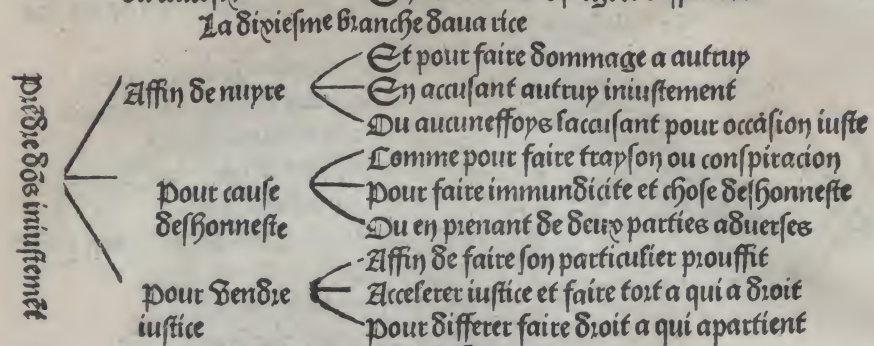 La dixiesme branche dauarice
Prēdre dōs iniustemēt
Affin de nuyre
Et pour faire dommage a autruy
En accusant autruy iniustement
Ou aucuneffoys laccusant pour occasion iuste
Pour cause
deshonneste
Comme pour faire trayson ou conspiracion
Pour faire immundicite et chose deshonneste
Ou en prenant de deux parties aduerses
Pour vendre
iustice
Affin de faire son particulier prouffit
Accelerer iustice et faire tort a qui a droit
Pour differer faire droit a qui apartient